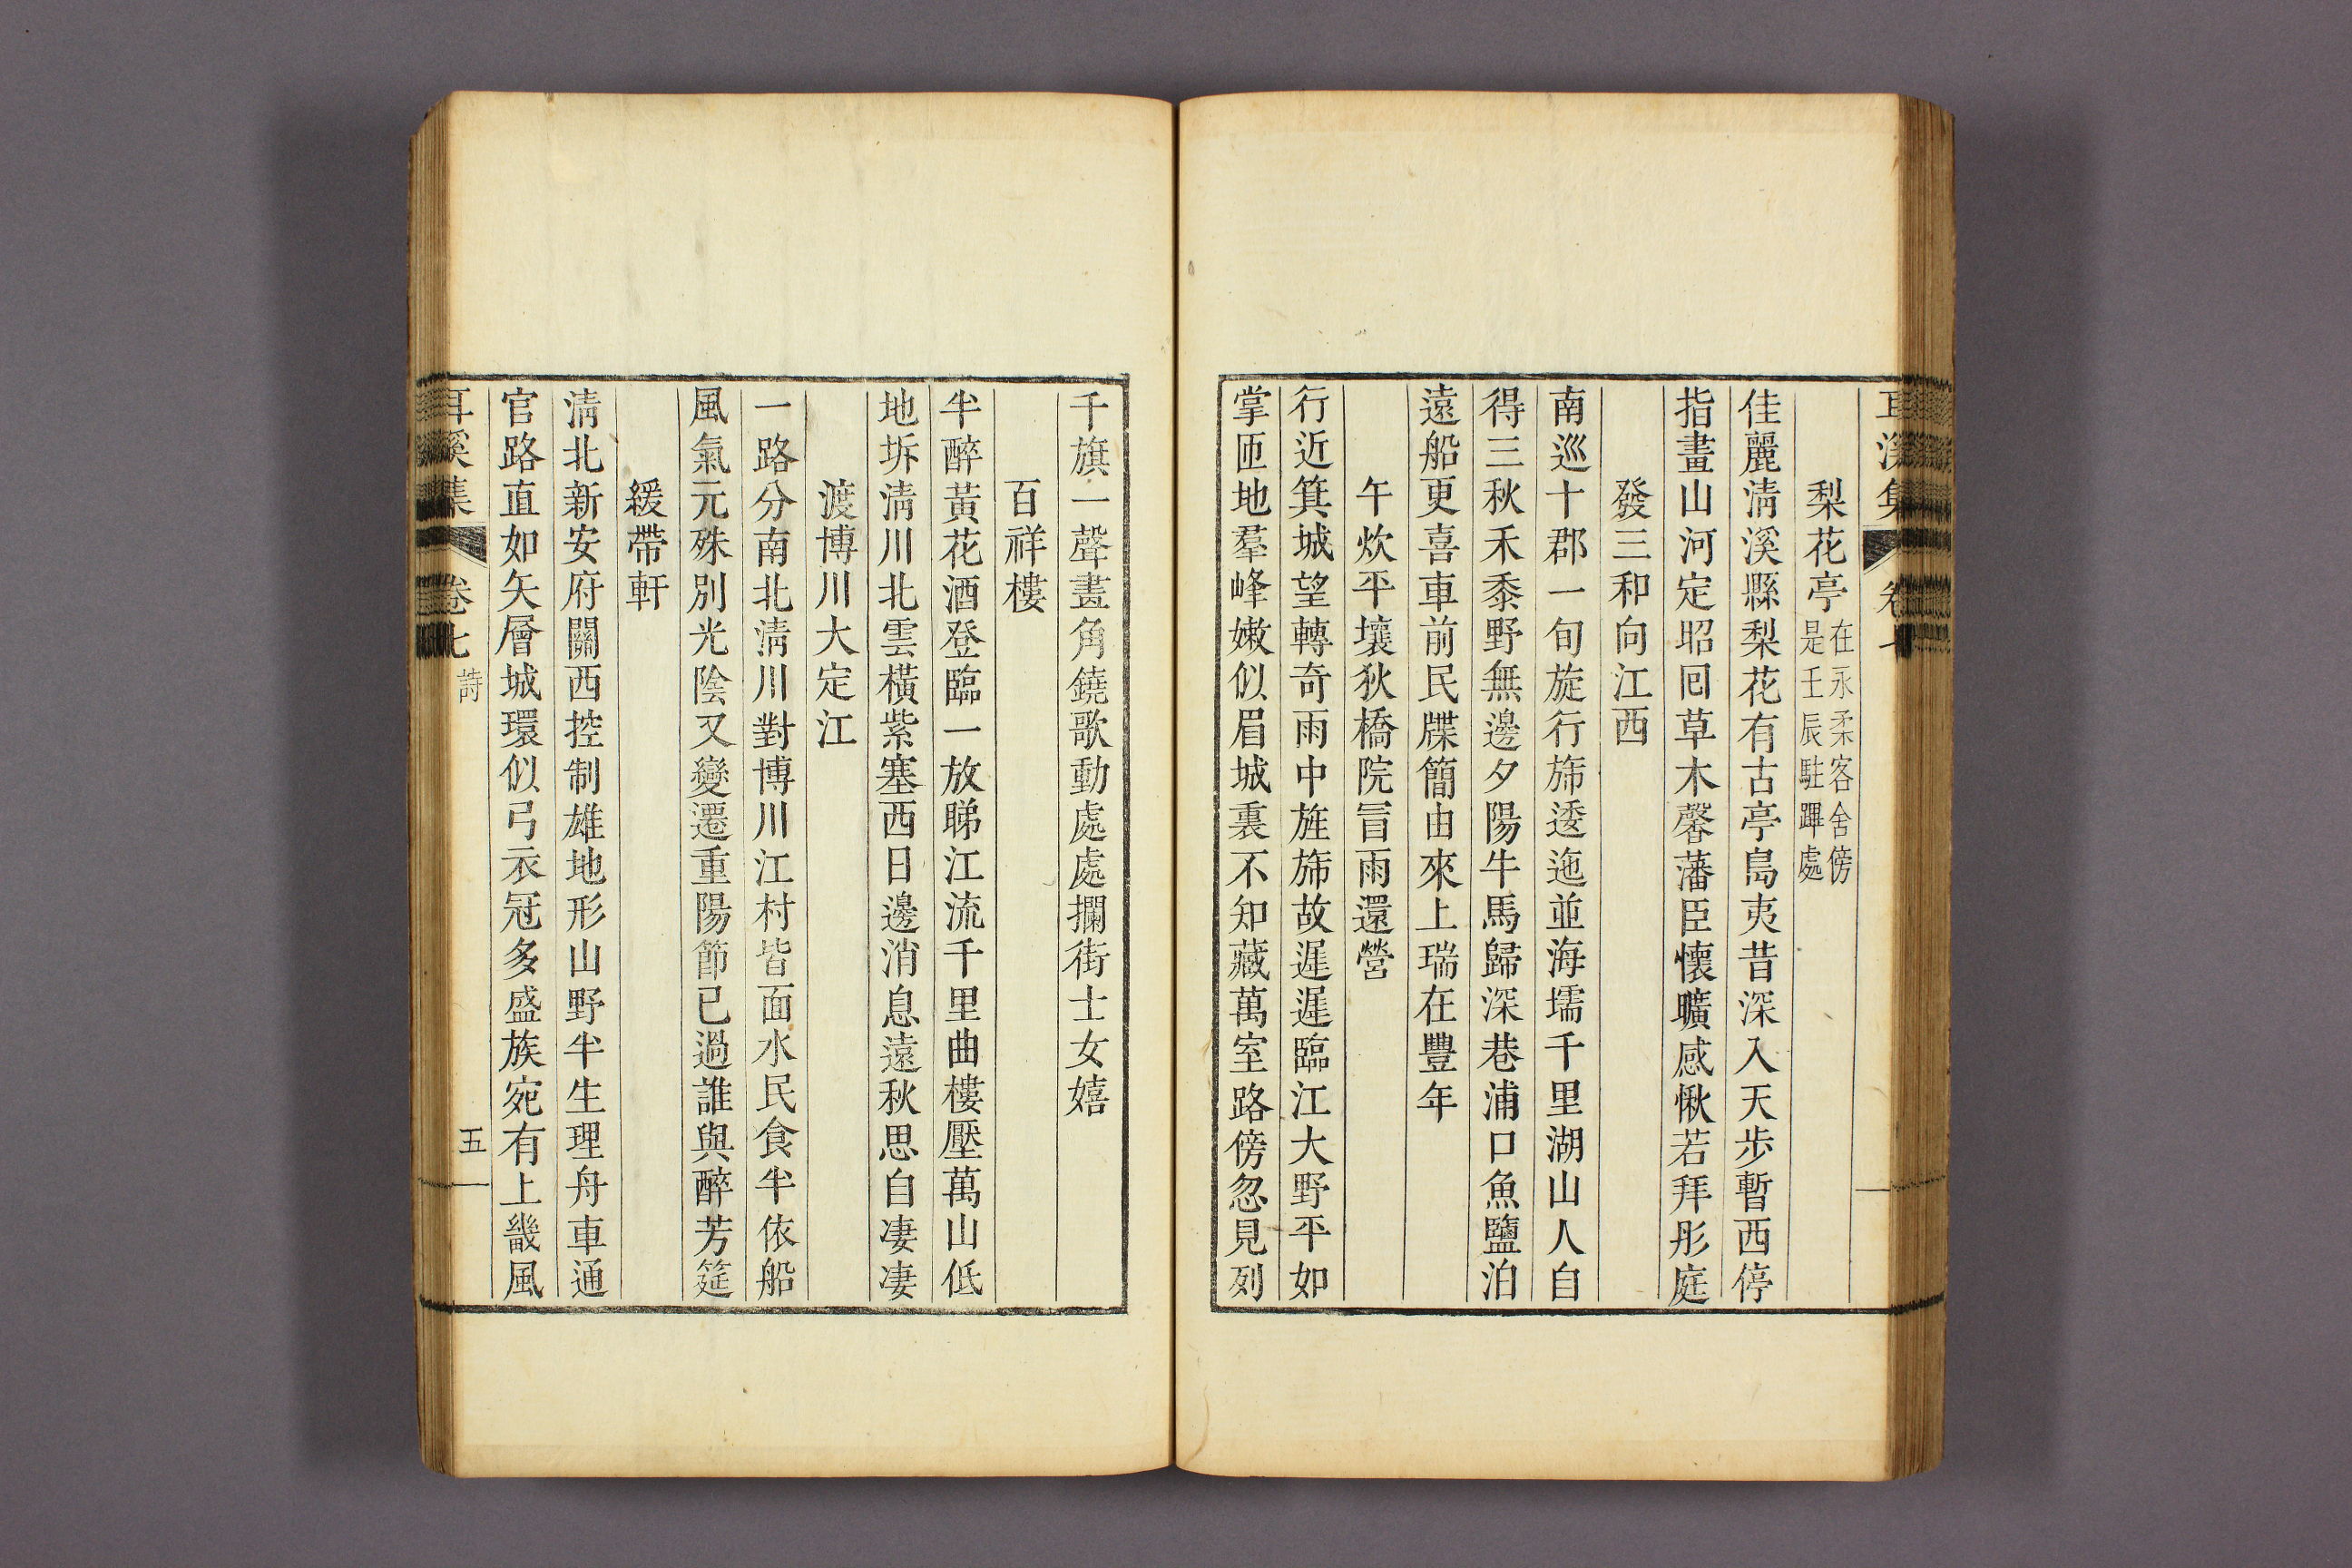 耳溪集 卷七
梨花亭 在永柔客舍傍是壬辰駐蹕處
佳麗淸溪縣梨花有古亭島夷昔深入天步暫西停
指畫山河定昭囘草木馨藩臣懷曠感愀若拜彤庭
發三和向江西
南巡十郡一旬旋行斾逶迤並海壖千里湖山人自
得三秋禾黍野無邊夕陽牛馬歸深巷浦口魚鹽泊
遠船更喜車前民牒簡由來上瑞在豐年
午炊平壤狄橋院冒雨還營
行近箕城望轉奇雨中旌斾故遲遲臨江大野平如
掌匝地羣峰嫩似眉城裏不知藏萬室路傍忽見列
千旗一聲畫角鐃歌動處處攔街士女嬉
百祥樓
半醉黃花酒登臨一放睇江流千里曲樓壓萬山低
地坼淸川北雲橫紫塞西日邊消息遠秋思自凄凄
渡博川大定江
一路分南北淸川對博川江村皆面水民食半依船
風氣元殊別光陰又變遷重陽節已過誰與醉芳筵
緩帶軒
淸北新安府關西控制雄地形山野半生理舟車通
官路直如矢層城環似弓衣冠多盛族宛有上畿風
耳溪集 卷七 詩 五